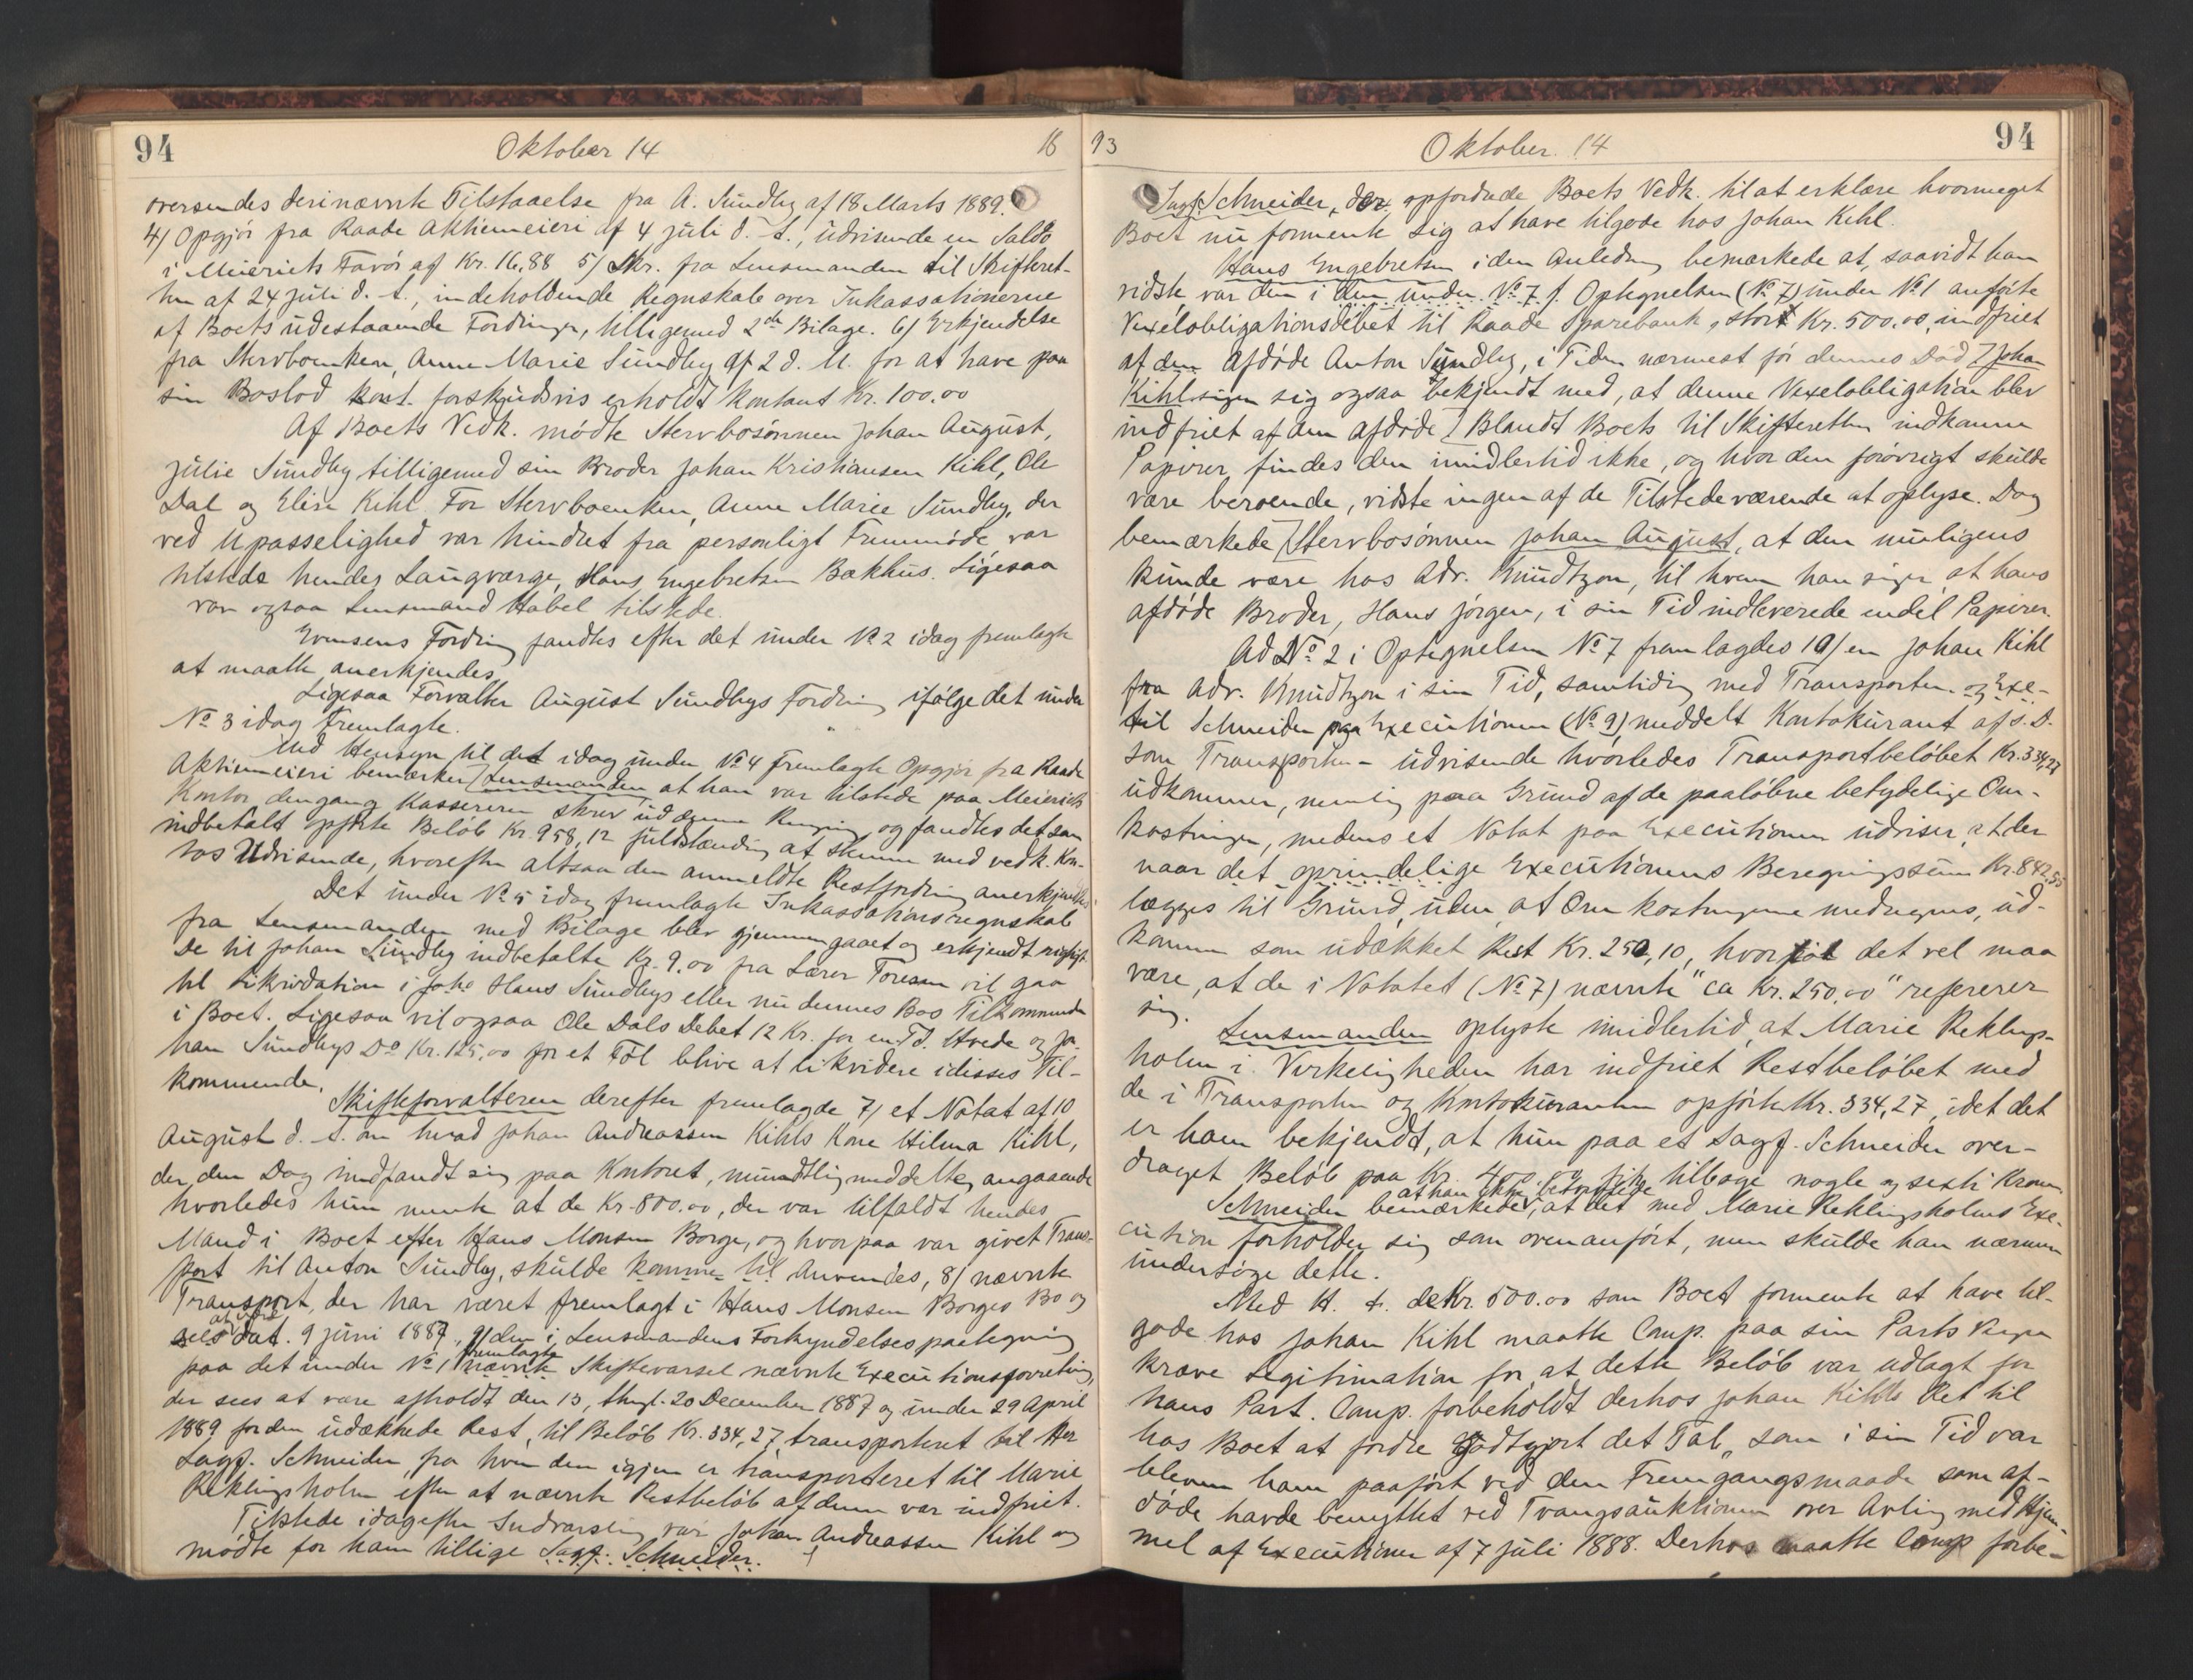 94
Oktober 14
18
oversendes derinævnte Tilstaaelse fra A. Sundby af 18 Marts 1889.
4/ Opgjør fra Raade Aktiemeieri af 4 juli d. A., udvisende en Saldo
i Meieriets Favør af Kr. 16,88 5/ Skr. fra Lensmanden til Skifteret-
ten af 24 juli d. A., indeholdende Regnskab over Inkassationerne
af Boets udestaaende Fordringer, tilligemed 2de Bilage. 6/ Erkjendelse
fra Stervboenken, Anne Marie Sundby af 2 d. M. for at have paa
sin Boslod kont. forskudsvis erholdt kontant Kr. 100.00
Af Boets Vedk. mødte Stervbosønnen Johan August,
Julie Sundby tilligemed sin Broder Johan Kristiansen Kihl, Ole
Dal og Elise Kihl. For Stervboenken, Anne Marie Sundby, der
ved Upasselighed var hindret fra personligt Fremmøde, var
tilstede hendes Laugværge, Hans Engebretsen Bækhus. Ligesaa
var ogsaa Lensmand Habel tilstede.
Evensens Fordring fandtes efter det under No 2 idag fremlagte
at maatte anerkjendes.
Ligesaa Forvalter August Sundbys Fordring ifølge det under
No 3 idag fremlagte.
Med Hensyn til det idag under No 4 fremlagte Opgjør fra Raade
Aktiemeieri bemærker Lensmanden at han var tilstede paa Meieriets
Kontor dengang Kassereren skrev ud denne Regning og fandtes det som
indbetalt opførte Beløb Kr. 958,12 fuldstændig at stemme med vedk. Kon-
tos Udvisende, hvorefter altsaa den anmeldte Restfordring anerkjendtes
Det under No 5 idag fremlagte Inkassationsregnskab
fra Lensmanden med Bilage blev gjennemgaaet og erkjendt rigtigt
De til Johan Sundby indbetalte Kr. 9.00 fra Lærer Toresen vil gaa
til Likvidation i Hans Sundbys eller nu dennes Bos Tilkommende
i Boet. Ligesaa vil ogsaa Ole Dals Debet 12 Kr. for en Td. Hvede og Jo-
han Sundbys Do Kr. 125,00 for et Føl blive at likvidere i disses Til-
kommende.
Skifteforvalteren derefter fremlagde 7/ et Notat af 10
August d. A. om hvad Johan Andreassen Kihls Kone Hilma Kihl,
der den Dag indfandt sig paa Kontoret, mundtlig meddelte, angaaende
hvorledes hun mente at de Kr. 800.00, der var tilfaldt hendes
Mand i Boet efter Hans Monsen Borge, og hvorpaa var givet Trans-
port til Anton Sundby, skulde komme til Anvendes, 8/ nævnte
Transport, der har været fremlagt i Hans Monsen Borges Bo og
sees at være dat. 9 juni 1887, 9/ den i Lensmandens Forkyndelsespaategning
paa det under No 1 fremlagte nævnte Skiftevarsel nævnte Executionsforretning,
der sees at være afholdt den 13, thingl. 20 December 1887 og under 29 April
1889 for den udækkede Rest, til Beløb Kr. 334,27 transporteret til Hr
Sagf. Schneider, fra hvem den igjen er transporteret til Marie
Reklingsholm efter at nævnte Restbeløb af denne var indfriet.
Tilstede idag efter Indvarsling var Johan Andreassen Kihl og
mødte for ham tillige Sagf. Schneider.
93
Oktober. 14
94
Sagf. Schneider, der opfordrede Boets Vedk. til at erklære hvormeget
Boet nu formente sig at have tilgode hos Johan Kihl.
Hans Engebretsen i den Anledning bemærkede at, saavidt han
vidste, var den i den under No 7 f. Optegnelsen (No 7) under No 1 anførte
Vexelobligationsdebet til Raade Sparebank, stort Kr. 500.00, indfriet
af den Afdøde Anton Sundby, i Tiden nærmest før dennes Død Johan
Kihl siger sig ogsaa bekjendt med, at denne Vexelobligation blev
indfriet af den Afdøde. Blandt Boets til Skifteretten indkomne
Papirer, findes den imidlertid ikke, og hvor den forøvrigt skulde
være beroende, vidste ingen af de Tilstedeværende at oplyse. Dog
bemærkede Stervbosønnen Johan August, at den muligens
kunde være hos Adv. Knudtzon, til hvem han siger at hans
afdøde Broder, Hans Jørgen, i sin Tid indleverede endel Papirer.
Ad No 2 i Optegnelsen No 7 fremlagdes 10/ en Johan Kihl
fra Adv. Knudtzon i sin Tid, samtidig med Transporten og Exe-
til Schneider paa Executionen (No 9) meddelt Kontokurant af s. D.
som Transporten – udvisende hvorledes Transportbeløbet Kr. 334,27
udkommer, nemlig paa Grund af de paaløbne betydelige Om-
kostninger, medens et Notat paa Executionen udviser, at der
naar det oprindelige Executionens Beregningssum Kr. 842,55
lægges til Grund, uden at Omkostningerne medregnes, ud-
kommer som udækket Rest Kr. 250,10, hvortil det vel maa
være, at de i Notatet (No 7) nævnte "ca Kr. 250.00" refererer
sig.
Lensmanden oplyste imidlertid, at Marie Reklings-
holm i Virkeligheden har indfriet Restbeløbet med
de i Transporten og Kontokuranten opførte Kr. 334,27, idet det
er ham bekjendt, at hun paa et Sagf. Schneider over-
draget Beløb paa Kr. 400.00 fik tilbage nogle og sexti Kroner
Schneider bemærkede, at han ikke at det med Marie Reklingsholms Exe-
cution forholder sig som ovenanført, men skulde han nærmere
undersøge dette.
Med H. t. de Kr. 500.00 som Boet formente at have til-
gode hos Johan Kihl maatte Comp. paa sin Parts Vegne
kræve Legitimation for, at dette Beløb var udlagt for
hans Part. Comp. forbeholdt derhos Johan Kihls Ret til
hos Boet at fordre godtgjort det Tab, som i sin Tid var
bleven ham paaført ved den Fremgangsmaade som af-
døde havde benyttet ved Tvangsauktionen over Avling med Hjem-
mel af Executionen af 7 juli 1888. Derhos maatte Comp forbe-